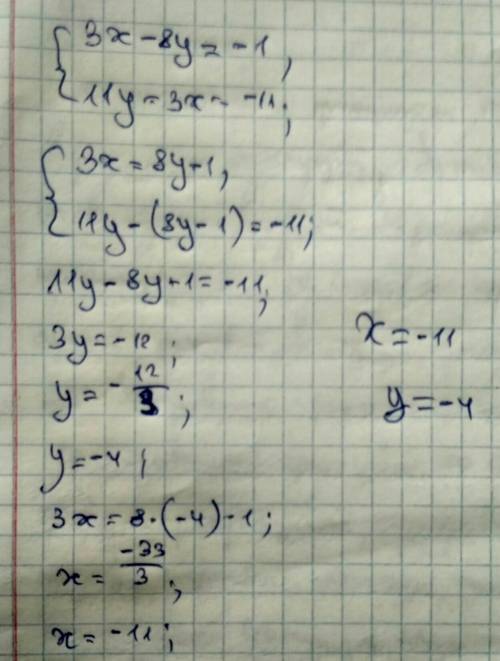 3x - 8y = -1,
11y - 3x = -11;
3x = 8y - 1,
11y - (8y - 1) = -11;
11y - 8y + 1 = -11;
3y = -12;
y = -12/3;
y = -4;
3x = 8·(-4) - 1;
x = -33/3;
x = -11;
x = -11
y = -4